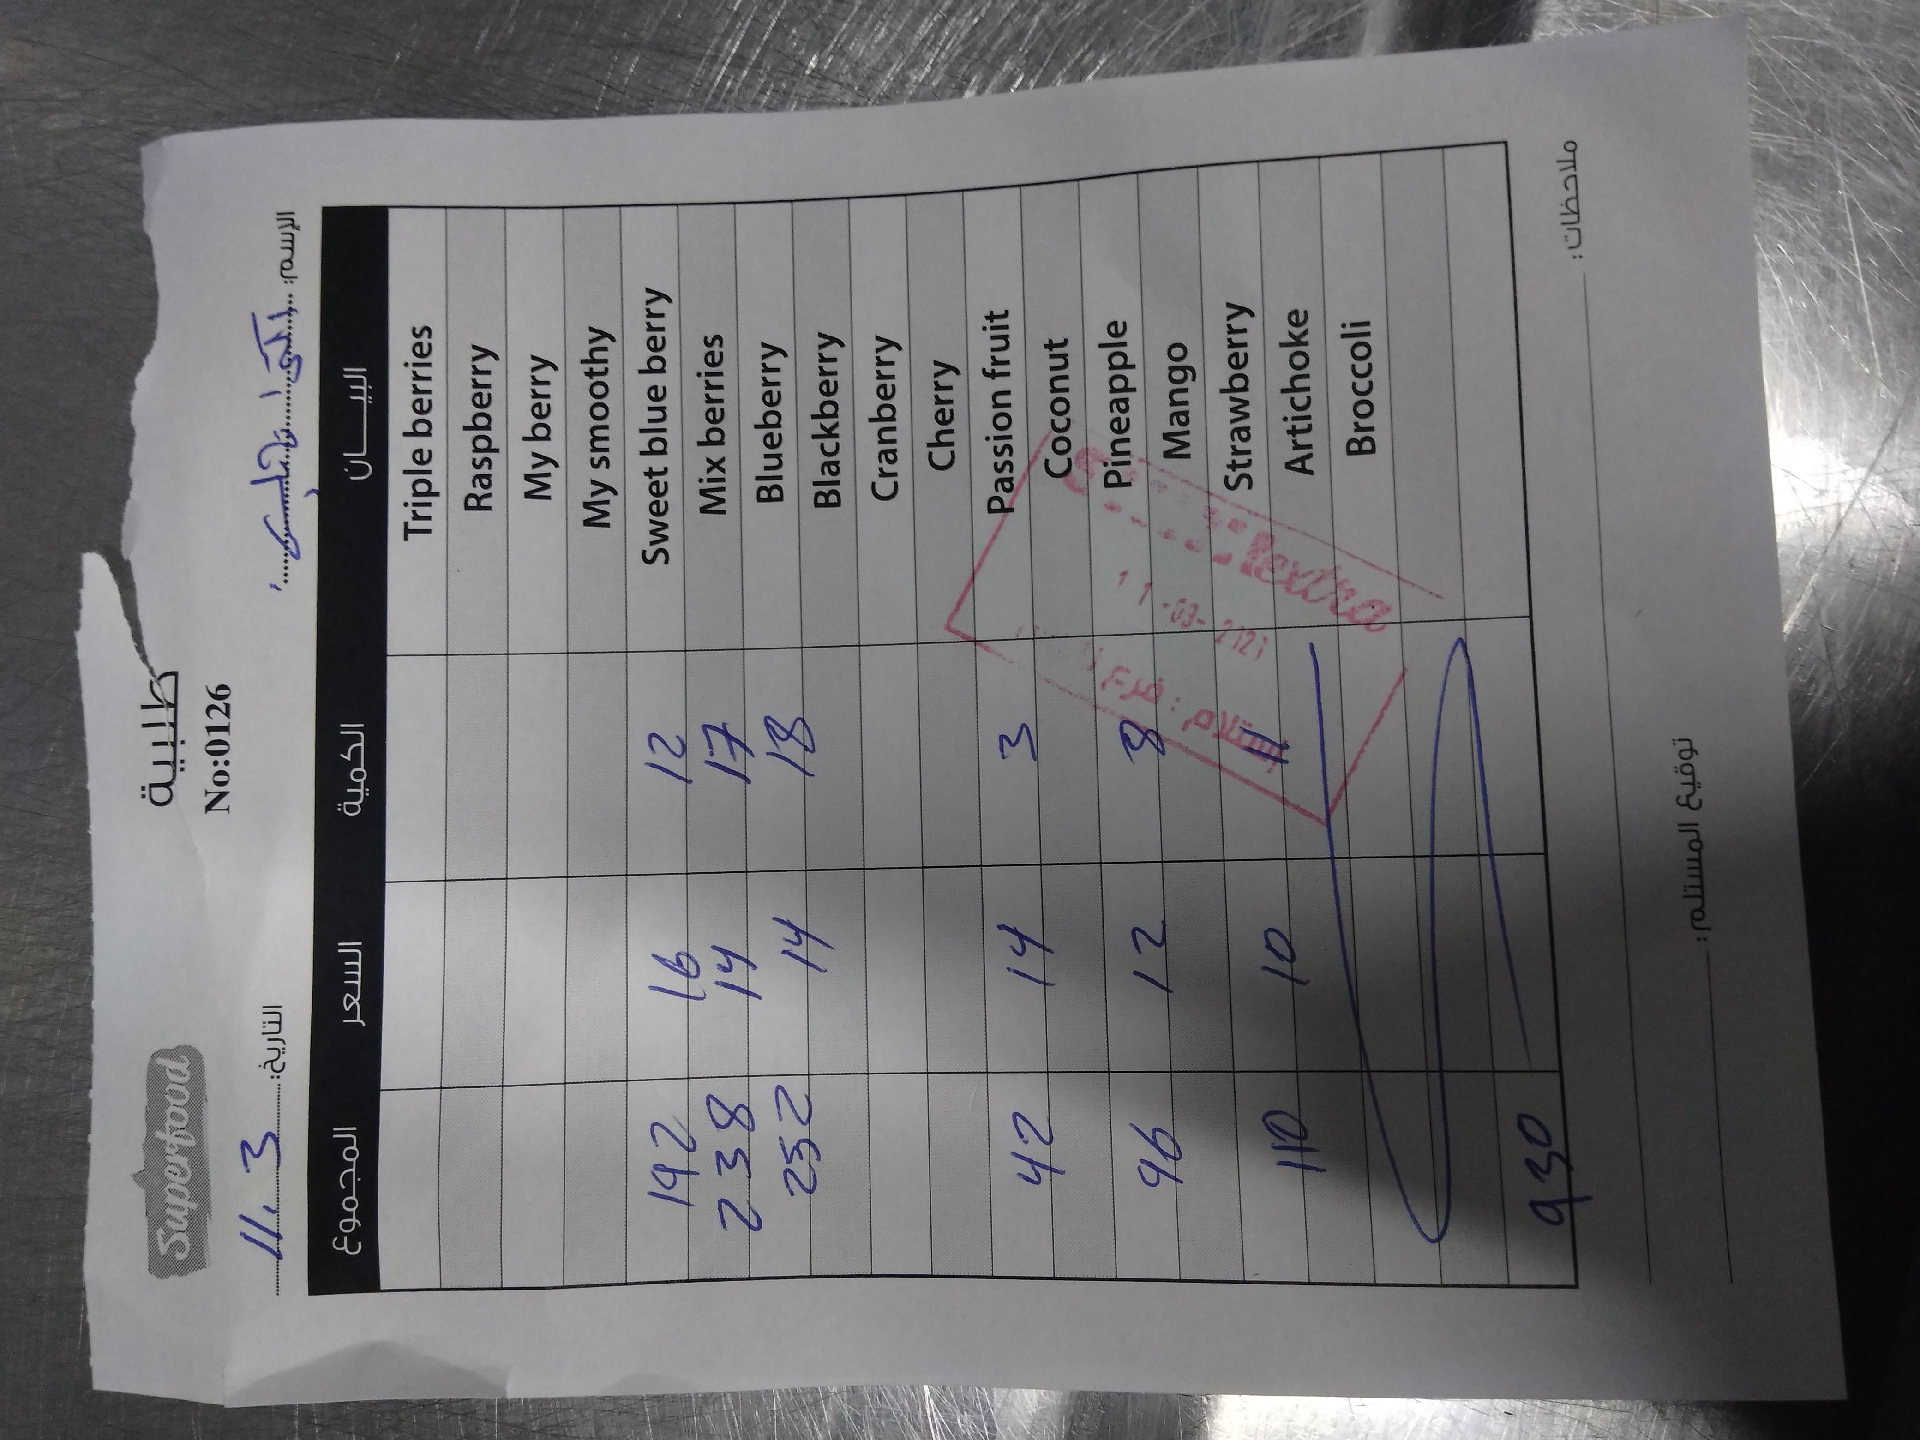 Superfood
طلبية
No:0126
التاريخ: 11.3
الإسم:
البيـــان الكمية السعر المجموع
Triple berries
Raspberry
My berry
My smoothy
Sweet blue berry 12 16 192
Mix berries 17 14 238
Blueberry 18 14 252
Blackberry
Cranberry
Cherry
Passion fruit 3 14 42
Coconut
Pineapple 8 12 96
Mango
Strawberry 11 10 110
Artichoke
Broccoli
930
extra
11-03-2121
إستلام : فرع
ملاحظات:
توقيع المستلم: